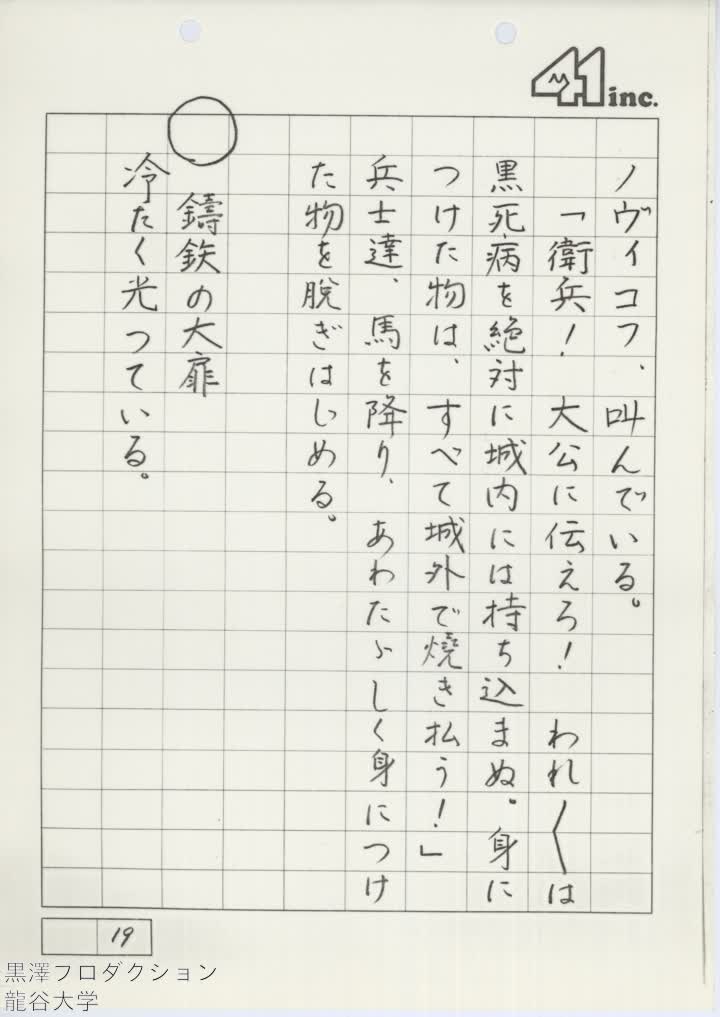 41 inc.
ノヴィコフ、叫んでいる。
「衛兵！　大公に伝えろ！　われ〱は
黒死病を絶対に城内には持ち込まぬ。身に
つけた物は、すべて城外で燒き払う！」
兵士達、馬を降り、あわたゞしく身につけ
た物を脱ぎはじめる。
○　鑄鉄の大扉
冷たく光つている。
19
黒澤プロダクション
龍谷大学